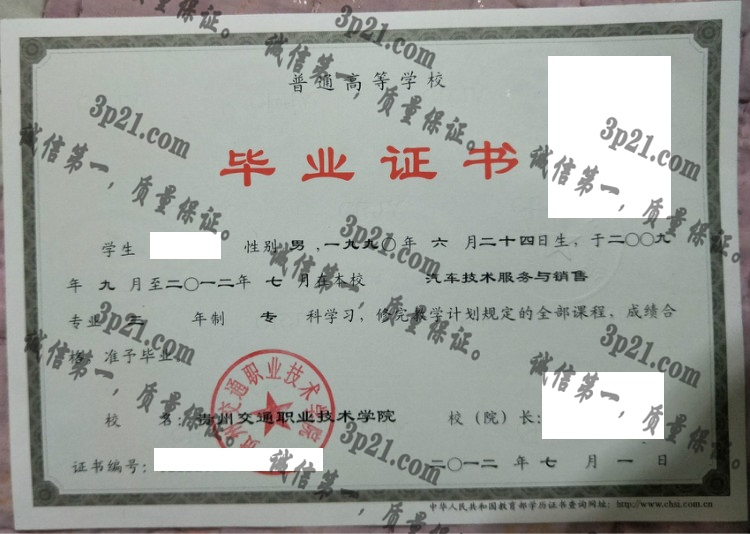 普通高等学校
毕业证书
学生 性别 男 ,一九九〇年 六 月二十四日生，于二〇〇九
年 九 月至二〇一二年 七 月在本校 汽车技术服务与销售
专业 三 年制 专 科学习，修完教学计划规定的全部课程，成绩合
格，准予毕业。
贵州交通职业技术学院
校 名：贵州交通职业技术学院 校（院）长：
证书编号： 二〇一二 年 七 月 一 日
中华人民共和国教育部学历证书查询网址：http://www.chsi.com.cn
3p21.com
诚信第一，质量保证。
3p21.com
诚信第一，质量保证。
3p21.com
诚信第一，质量保证。
3p21.com
诚信第一，质量保证。
3p21.com
诚信第一，质量保证。
3p21.com
诚信第一，质量保证。
3p21.com
诚信第一，质量保证。